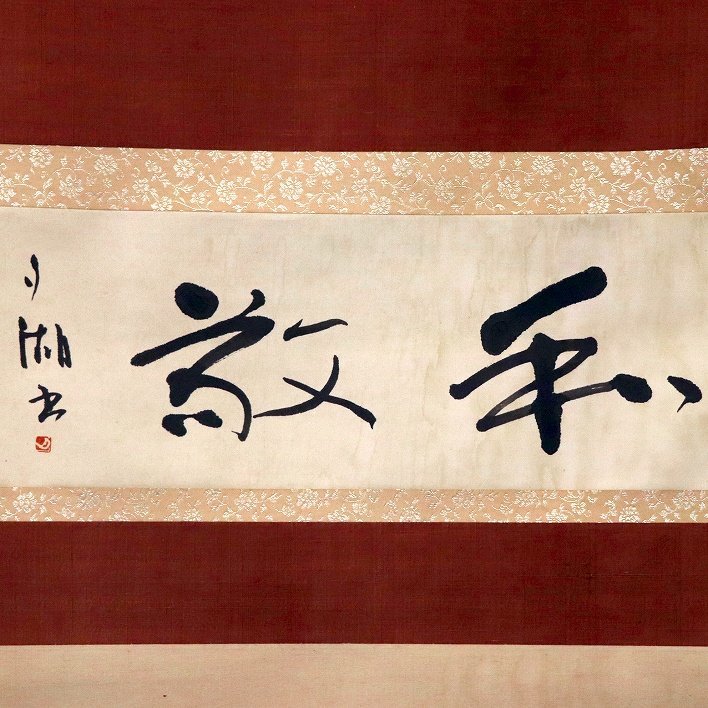 和敬
夕湖書